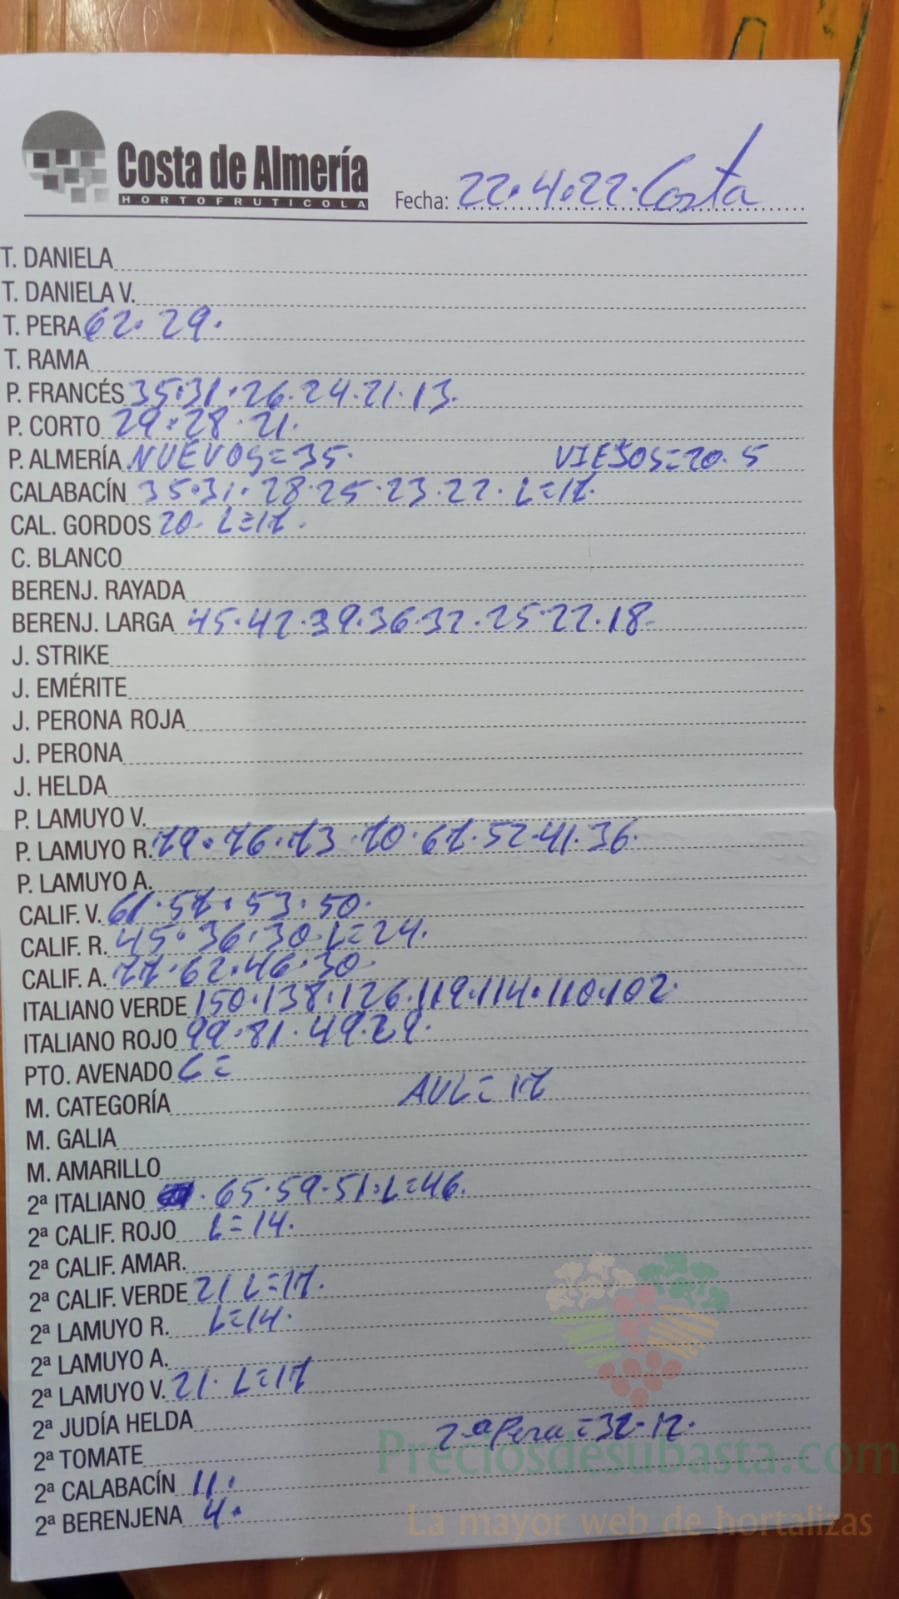 Costa de Almería
HORTOFRUTICOLA
Fecha: 22.4.22. Costa
T. DANIELA
T. DANIELA V.
T. PERA 62. 29.
T. RAMA
P. FRANCÉS 35.31.26.24.21.13.
P. CORTO 29.28.21.
P. ALMERÍA NUEVOS=35. VIEJOS=20.5
CALABACÍN 35.31.28.25.23.22. L=17.
CAL. GORDOS 20. L=17.
C. BLANCO
BERENJ. RAYADA
BERENJ. LARGA 45.42.39.36.32.25.22.18.
J. STRIKE
J. EMÉRITE
J. PERONA ROJA
J. PERONA
J. HELDA
P. LAMUYO V.
P. LAMUYO R. 79.76.73.70.67.52.41.36.
P. LAMUYO A.
CALIF. V. 61.57.53.50.
CALIF. R. 45.36.30.L=24.
CALIF. A. 77.62.46.30.
ITALIANO VERDE 150.138.126.119.114.110.102.
ITALIANO ROJO 99.81.49.29.
PTO. AVENADO L=
M. CATEGORÍA AVL=17
M. GALIA
M. AMARILLO
2ª ITALIANO 65.59.51.L=46.
2ª CALIF. ROJO L=14.
2ª CALIF. AMAR.
2ª CALIF. VERDE 21 L=17.
2ª LAMUYO R. L=14.
2ª LAMUYO A.
2ª LAMUYO V. 21. L=17
2ª JUDÍA HELDA
2ª Pera=32.12.
2ª TOMATE
Preciosdesubasta.com
2ª CALABACÍN 11.
2ª BERENJENA 4.
La mayor web de hortalizas